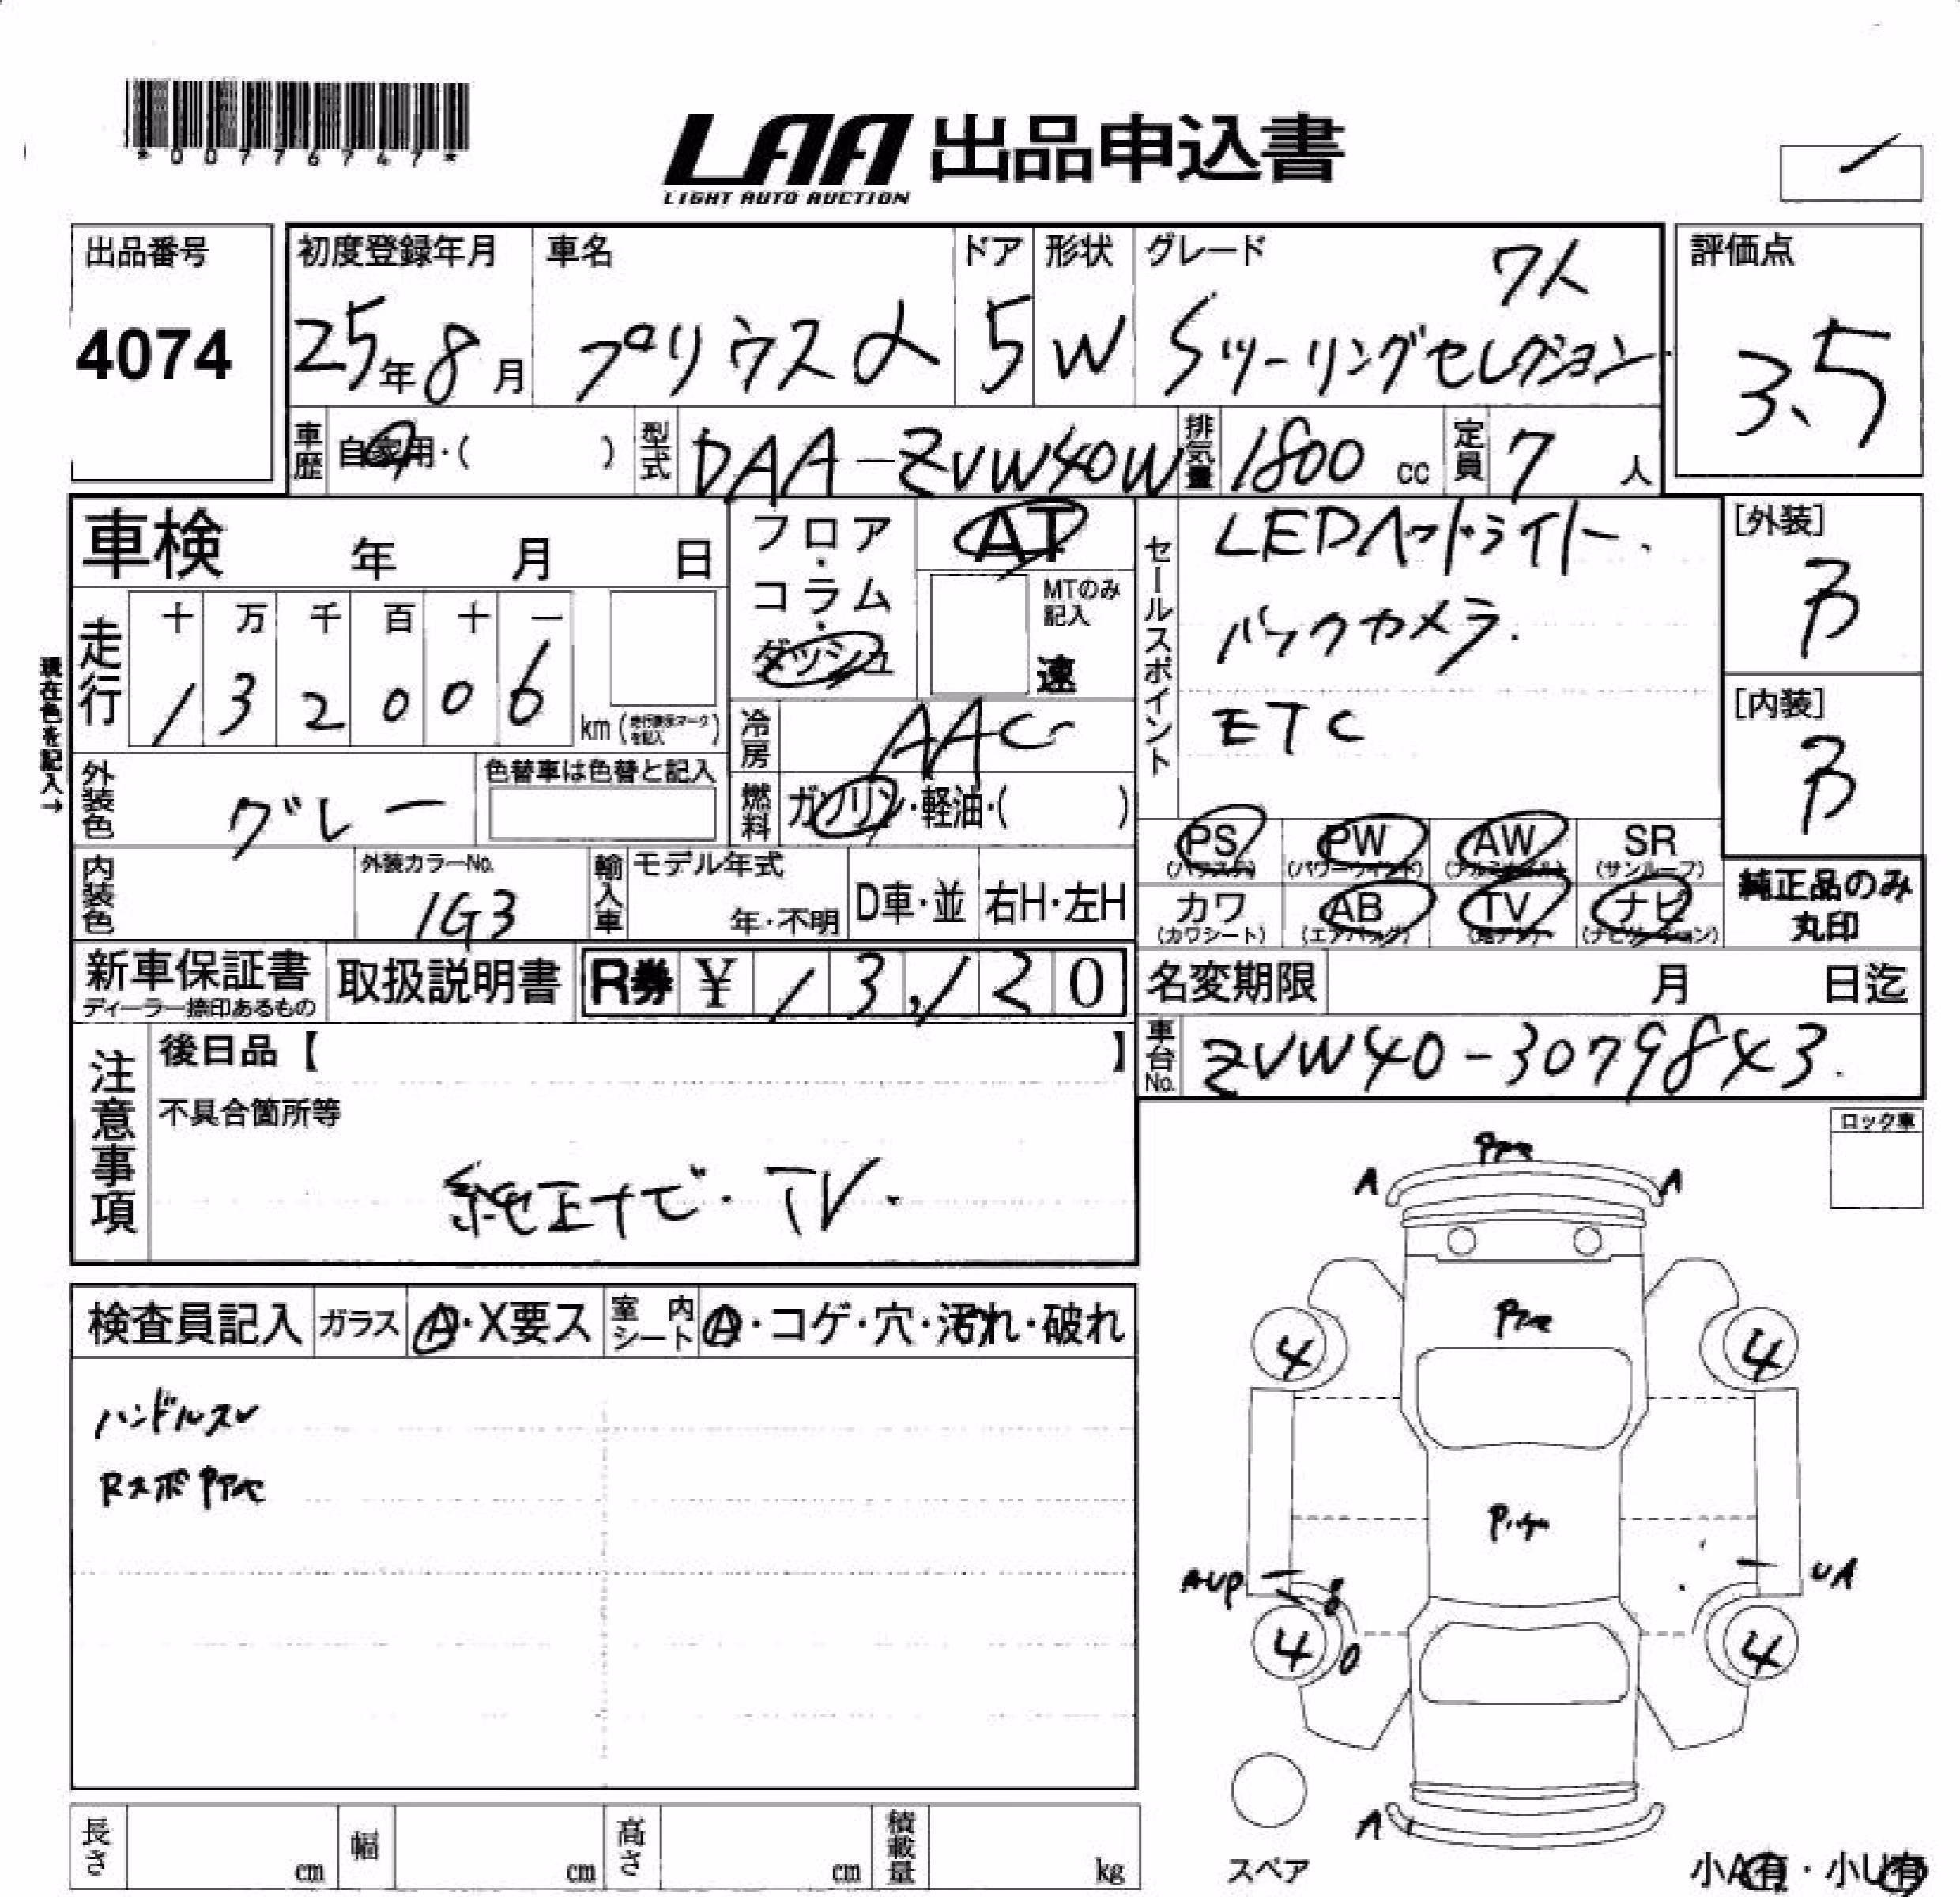 *00776747*
LAA 出品申込書
LIGHT AUTO AUCTION
出品番号
4074
初度登録年月
25年8月
車名
プリウスα
ドア
5
形状
W
グレード
7人
Sツーリングセレクション
評価点
3.5
車歴
自家用・( )
型式
DAA-ZVW40W
排気量
1800 cc
定員
7 人
車検 年 月 日
フロア・コラム・ダッシュ
AT
MTのみ記入
速
セールスポイント
LEDヘッドライト.
バックカメラ.
ETC
[外装]
B
[内装]
B
現在色を記入→
走行
十 万 千 百 十 一
1 3 2 0 0 6
km (走行表示マークを記入)
冷房
AAC
外装色
グレー
色替車は色替と記入
燃料
ガソリン・軽油・( )
PS (パワステ)
PW (パワーウインド)
AW (アルミホイル)
SR (サンルーフ)
カワ (カワシート)
AB (エアバッグ)
TV (地デジ)
ナビ (ナビゲーション)
純正品のみ
丸印
内装色
外装カラーNo.
1G3
輸入車
モデル年式
年・不明
D車・並
右H・左H
新車保証書
ディーラー捺印あるもの
取扱説明書
R券 ¥ 13,120
名変期限 月 日迄
車台No.
ZVW40-3079843.
注意事項
後日品【 】
不具合箇所等
純正ナビ・TV.
ロック車
検査員記入
ガラス
A・X要ス
室内シート
A・コゲ・穴・汚れ・破れ
ハンドルスレ
A
A
4
4
AUP
UA
4
4
A
スペア
小A有・小U有
長さ cm
幅 cm
高さ cm
積載量 kg